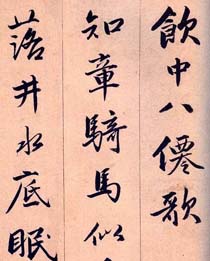 飲中八僊歌
知章騎馬似
落井水底眠